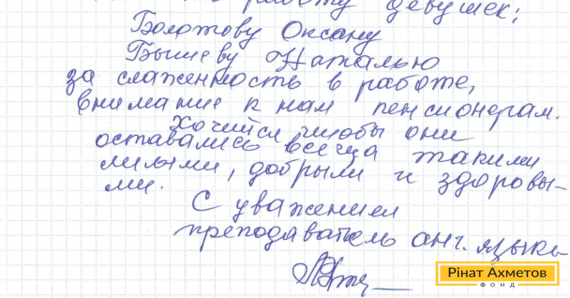 работу девушек:
Болотову Оксану
Бышеву Наталью
за слаженность в работе,
внимание к нам пенсионерам.
Хочется чтобы они
оставались всегда такими
милыми, добрыми и здоровы-
ми.
С уважением
преподаватель анг. языка
Рінат Ахметов
ФОНД